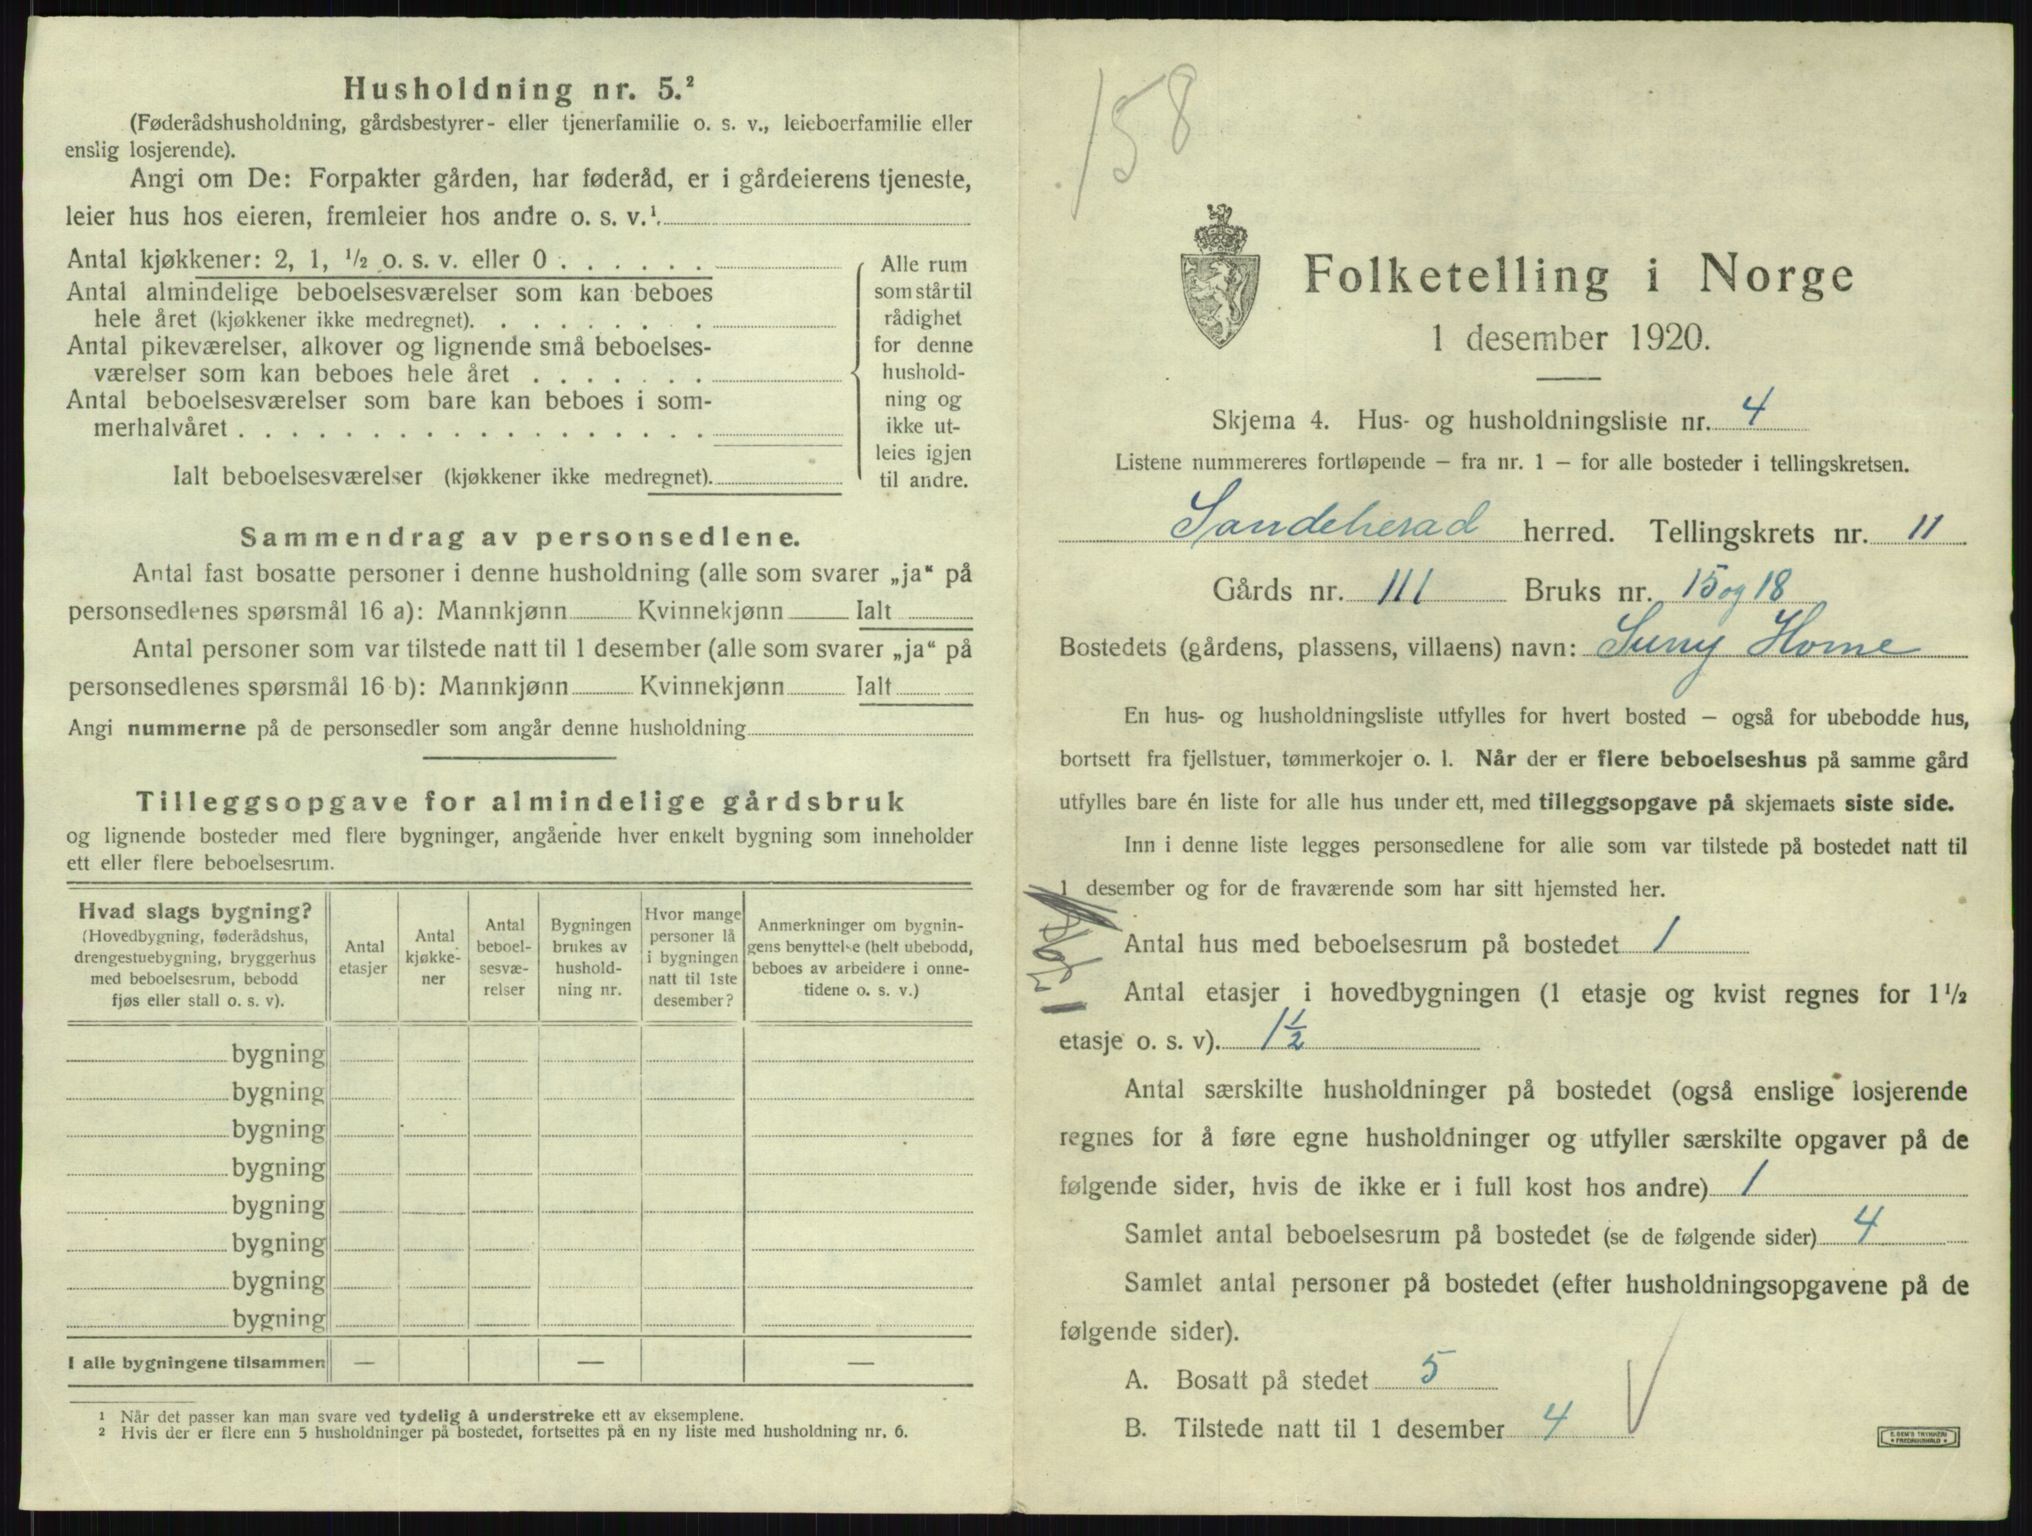 Husholdning nr. 5.²
(Føderådshusholdning, gårdsbestyrer- eller tjenerfamilie o. s. v., leieboerfamilie eller
enslig losjerende).
Angi om De: Forpakter gården, har føderåd, er i gårdeierens tjeneste,
leier hus hos eieren, fremleier hos andre o. s. v.¹.
Antal kjøkkener: 2, 1, ½ o. s. v. eller 0 . . . . . .
Antal almindelige beboelsesværelser som kan beboes
hele året (kjøkkener ikke medregnet). . . . . . . .
Antal pikeværelser, alkover og lignende små beboelses-
værelser som kan beboes hele året . . . . . . .
Antal beboelsesværelser som bare kan beboes i som-
merhalvåret . . . . . . . . . . . . . . . . . .
Ialt beboelsesværelser (kjøkkener ikke medregnet).
Alle rum
som står til
rådighet
for denne
hushold-
ning og
ikke ut-
leies igjen
til andre.
Sammendrag av personsedlene.
Antal fast bosatte personer i denne husholdning (alle som svarer „ja“ på
personsedlenes spørsmål 16 a): Mannkjønn Kvinnekjønn Ialt
Antal personer som var tilstede natt til 1 desember (alle som svarer „ja“ på
personsedlenes spørsmål 16 b): Mannkjønn Kvinnekjønn Ialt
Angi nummerne på de personsedler som angår denne husholdning
Tilleggsopgave for almindelige gårdsbruk
og lignende bosteder med flere bygninger, angående hver enkelt bygning som inneholder
ett eller flere beboelsesrum.
Hvad slags bygning?
(Hovedbygning, føderådshus,
drengestuebygning, bryggerhus
med beboelsesrum, bebodd
fjøs eller stall o. s. v).
Antal
etasjer
Antal
kjøkke-
ner
Antal
beboel-
sesvæ-
relser
Bygningen
brukes av
hushold-
ning nr.
Hvor mange
personer lå
i bygningen
natt til 1ste
desember?
Anmerkninger om bygnin-
gens benyttelse (helt ubebodd,
beboes av arbeidere i onne-
tidene o. s. v.)
bygning
bygning
bygning
bygning
bygning
bygning
bygning
bygning
I alle bygningene tilsammen — — —
¹ Når det passer kan man svare ved tydelig å understreke ett av eksemplene.
² Hvis der er flere enn 5 husholdninger på bostedet, fortsettes på en ny liste med husholdning nr. 6.
158
Folketelling i Norge
1 desember 1920.
Skjema 4. Hus- og husholdningsliste nr. 4
Listene nummereres fortløpende – fra nr. 1 – for alle bosteder i tellingskretsen.
Sandeherad herred. Tellingskrets nr. 11
Gårds nr. 111 Bruks nr. 15 og 18
Bostedets (gårdens, plassens, villaens) navn: Suny Home
En hus- og husholdningsliste utfylles for hvert bosted – også for ubebodde hus,
bortsett fra fjellstuer, tømmerkojer o. l. Når der er flere beboelseshus på samme gård
utfylles bare én liste for alle hus under ett, med tilleggsopgave på skjemaets siste side.
Inn i denne liste legges personsedlene for alle som var tilstede på bostedet natt til
1 desember og for de fraværende som har sitt hjemsted her.
Antal hus med beboelsesrum på bostedet 1
Antal etasjer i hovedbygningen (1 etasje og kvist regnes for 1½
etasje o. s. v). 1½
Antal særskilte husholdninger på bostedet (også enslige losjerende
regnes for å føre egne husholdninger og utfyller særskilte opgaver på de
følgende sider, hvis de ikke er i full kost hos andre) 1
Samlet antal beboelsesrum på bostedet (se de følgende sider) 4
Samlet antal personer på bostedet (efter husholdningsopgavene på de
følgende sider).
A. Bosatt på stedet 5
B. Tilstede natt til 1 desember 4